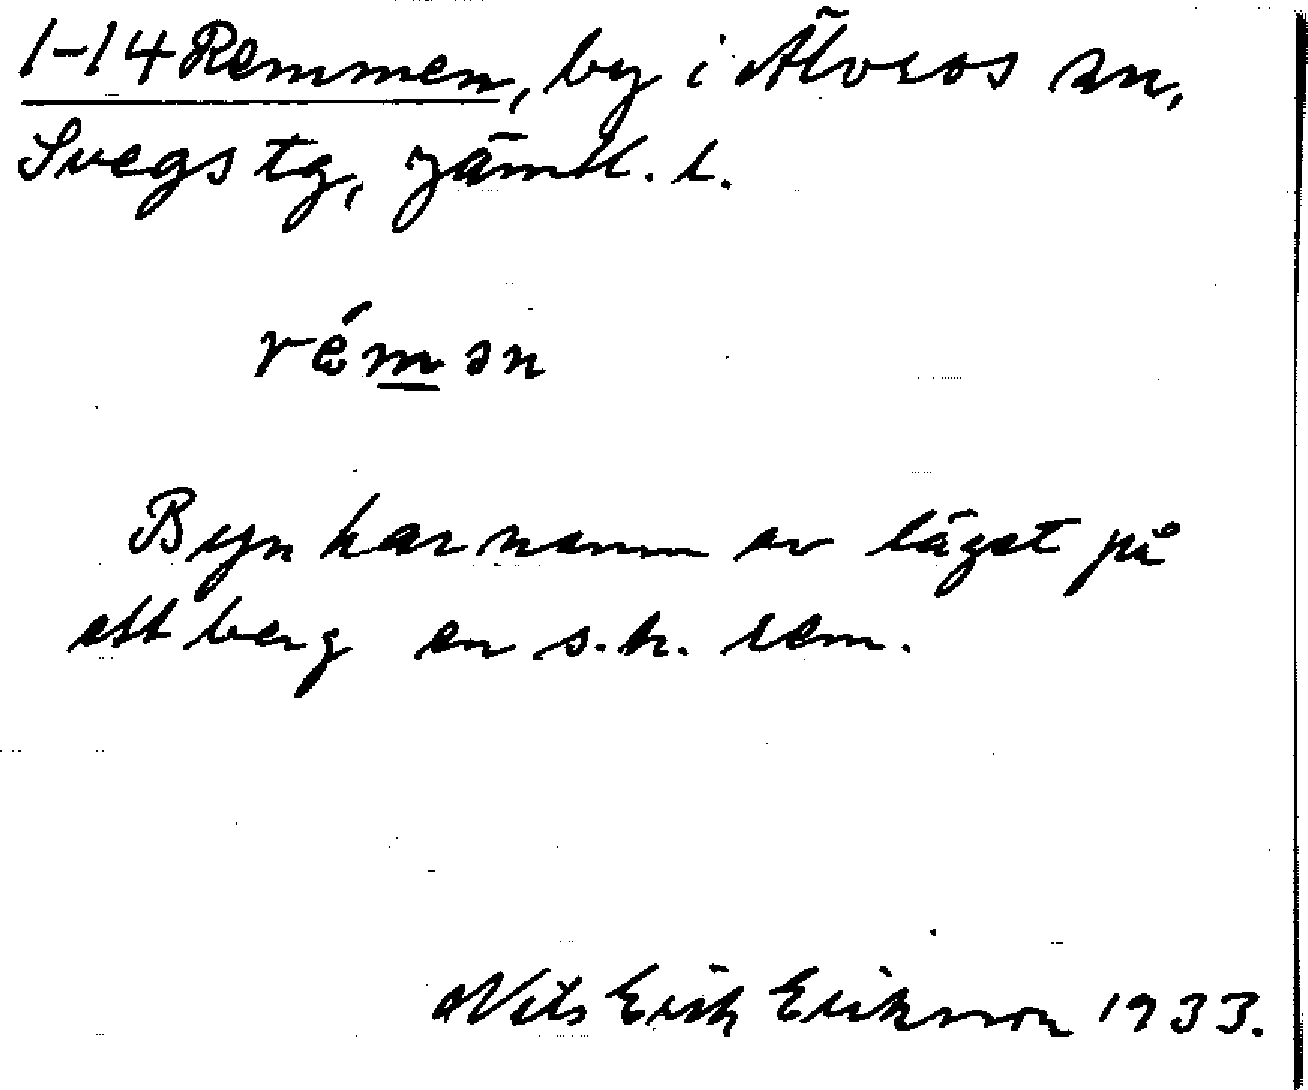 1-14 Remmen, by i Älvros sn,
Svegs tg, Jämtl. l.
rémən
Byn har namn av läget på
ett berg en s.k. rem.
Nils Erik Eriksson 1933.